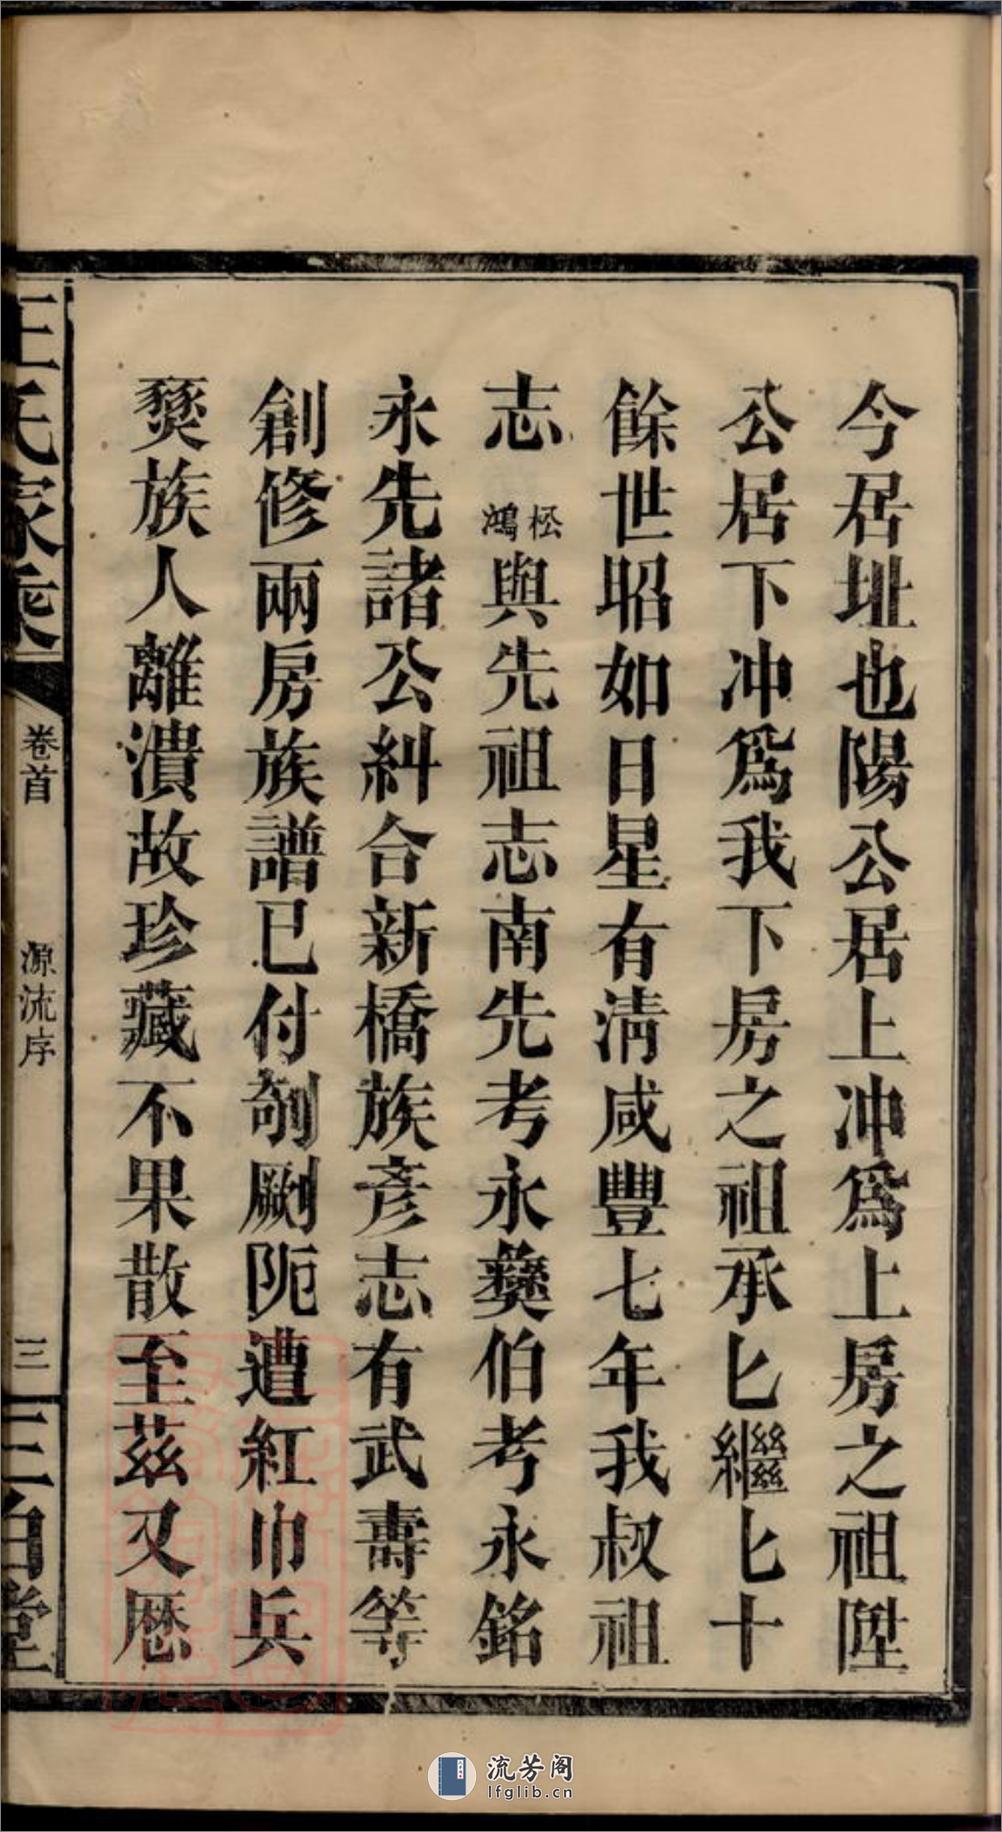 今居址也陽公居上冲爲上房之祖陞
公居下冲爲我下房之祖承匕繼匕十
餘世昭如日星有清咸豐七年我叔祖
志松鴻與先祖志南先考永彝伯考永銘
永先諸公糾合新橋族彦志有武壽等
創修兩房族譜已付剞劂阨遭紅巾兵
燹族人離潰故珍藏不果散至茲又歷
王氏家乘
卷首
源流序
三
三伯堂
流芳阁
lfglib.cn